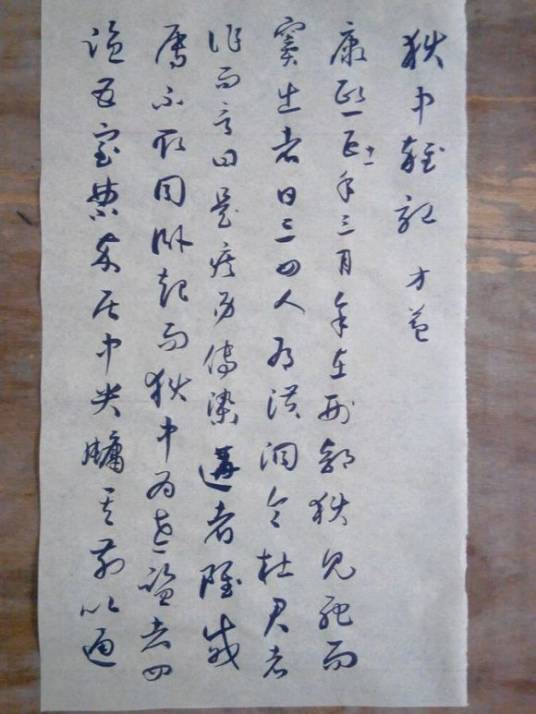 獄中雜記 方苞
康熙五十一年三月余在刑部獄見死而
竇出者日三四人有洪洞令杜君者
作而言曰是疾易傳染遘者雖戚
屬不敢同臥起而獄中為老監者四
監五室禁卒居中央牖其前以通